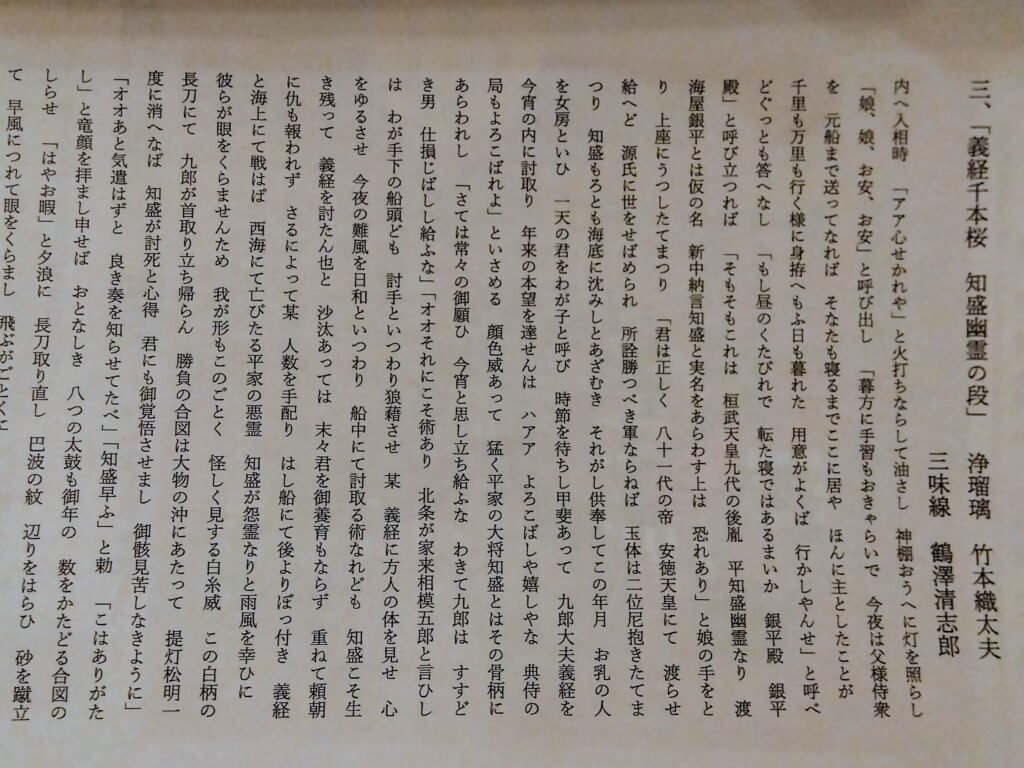 三、「義経千本桜　知盛幽霊の段」　浄瑠璃　竹本織太夫
三味線　鶴澤清志郎
内へ入相時　「アア心せかれや」と火打ちならして油さし　神棚おうへに灯を照らし
「娘、娘、お安、お安」と呼び出し　「暮方に手習もおきゃらいで　今夜は父様侍衆
を　元船まで送ってなれば　そなたも寝るまでここに居や　ほんに主としたことが
千里も万里も行く様に身拵へもふ日も暮れた　用意がよくば　行かしやんせ」と呼べ
どぐっとも答へなし　「もし昼のくたびれで　転た寝ではあるまいか　銀平殿　銀平
殿」と呼び立つれば　「そもそもこれは　桓武天皇九代の後胤　平知盛幽霊なり　渡
海屋銀平とは仮の名　新中納言知盛と実名をあらわす上は　恐れあり」と娘の手をと
り　上座にうつしたてまつり　「君は正しく　八十一代の帝　安徳天皇にて　渡らせ
給へど　源氏に世をせばめられ　所詮勝つべき軍ならねば　玉体は二位尼抱きたてま
つり　知盛もろとも海底に沈みしとあざむき　それがし供奉してこの年月　お乳の人
を女房といひ　一天の君をわが子と呼び　時節を待ちし甲斐あって　九郎大夫義経を
今宵の内に討取り　年来の本望を達せんは　ハアア　よろこばしや嬉しやな　典侍の
局もよろこばれよ」といさめる　顔色威あって　猛く平家の大将知盛とはその骨柄に
あらわれし　「さては常々の御願ひ　今宵と思し立ち給ふな　わきて九郎は　すすど
き男　仕損じばしし給ふな」「オオそれにこそ術あり　北条が家来相模五郎と言ひし
は　わが手下の船頭ども　討手といつわり狼藉させ　某　義経に方人の体を見せ　心
をゆるさせ　今夜の難風を日和といつわり　船中にて討取る術なれども　知盛こそ生
き残って　義経を討たん也と　沙汰あっては　末々君を御養育もならず　重ねて頼朝
に仇も報われず　さるによって某　人数を手配り　はし船にて後よりぼっ付き　義経
と海上にて戦はば　西海にて亡びたる平家の悪霊　知盛が怨霊なりと雨風を幸ひに
彼らが眼をくらませんため　我が形もこのごとく　怪しく見する白糸威　この白柄の
長刀にて　九郎が首取り立ち帰らん　勝負の合図は大物の沖にあたって　提灯松明一
度に消へなば　知盛が討死と心得　君にも御覚悟させまし　御骸見苦しなきように」
「オオあと気遣はずと　良き奏を知らせてたべ」「知盛早ふ」と勅　「こはありがた
し」と竜顔を拝まし申せば　おとなしき　八つの太鼓も御年の　数をかたどる合図の
しらせ　「はやお暇」と夕浪に　長刀取り直し　巴波の紋　辺りをはらひ　砂を蹴立
て　早風につれて眼をくらまし　飛ぶがごとくに